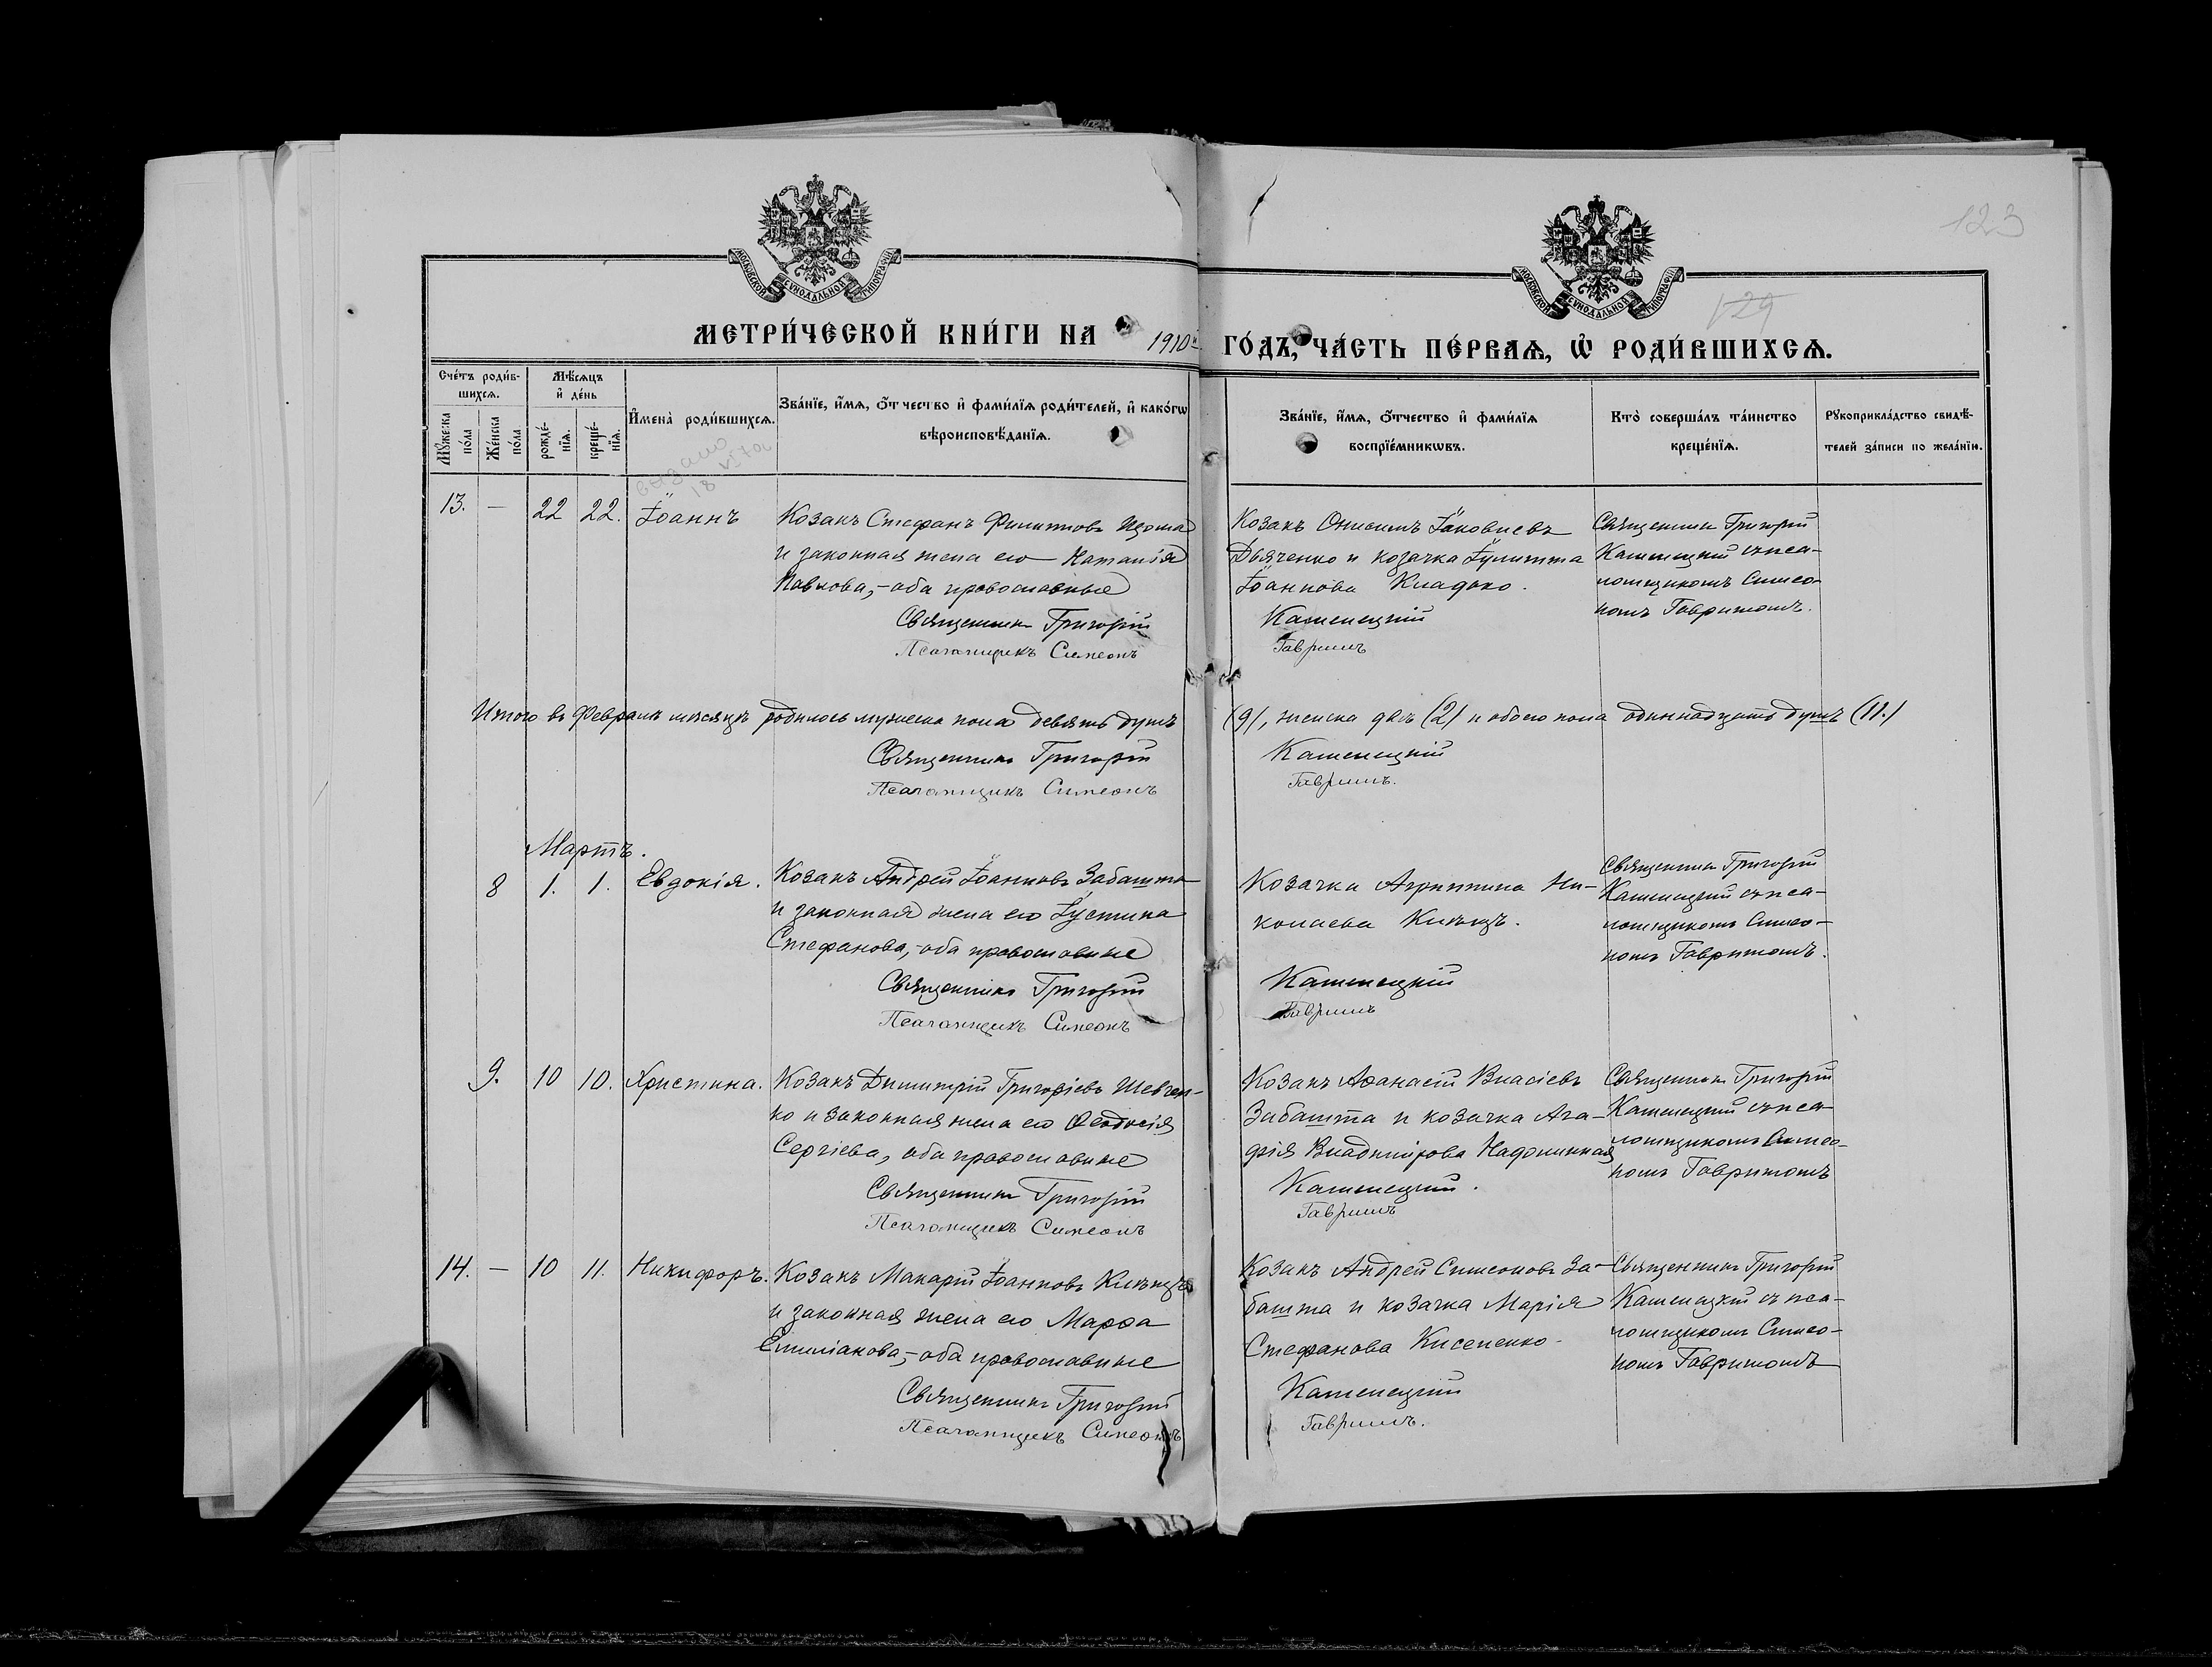 123
129
МОСКОВСКОЙ СѴНОДАЛЬНОЙ ТИПОГРАФІИ
МОСКОВСКОЙ СѴНОДАЛЬНОЙ ТИПОГРАФІИ
МЕТРИ́ЧЕСКОЙ КНИ́ГИ НА 1910й ГО́ДЪ, ЧА́СТЬ ПЕ́РВАѦ, Ѡ҆ РОДИ́ВШИХСѦ.
Сче́тъ роди́в-
шихсѧ.
Мꙋ́жеска
по́ла
Же́нска
по́ла
Мѣ́сѧцъ
и҆ де́нь
рожде́-
нїѧ.
креще́-
нїѧ.
И҆мена̀ роди́вшихсѧ.
Зва́нїе, и҆́мѧ, ѻ҆́тчество и҆ фами́лїѧ роди́телей, и҆ како́гѡ
вѣроисповѣ́данїѧ.
Зва́нїе, и҆́мѧ, ѻ҆́тчество и҆ фами́лїѧ
воспрїе́мникѡвъ.
Кто̀ соверша́лъ та́инство
креще́нїѧ.
Рꙋкоприкла́дство свидѣ́-
телей за́писи по жела́нїю.
13. — 22 22. Іоаннъ
Козакъ Стефанъ Филиповъ
и законная жена его Наталія
Павлова, - оба православные
Священникъ Григорій
Псаломщикъ Симеонъ
Козакъ Онисимъ Іаковлевъ
Дьяченко и козачка Іулитта
Іоаннова Кладько.
Каменецкій
Гавришъ
Священникъ Григорій
Каменецкій съ пса-
ломщикомъ Симео-
номъ Гавришомъ.
Итого въ Февралѣ мѣсяцѣ родилось мужеска пола девять душъ (9), женска двѣ (2) и обоего пола одиннадцать душъ (11.)
Священникъ Григорій Каменецкій
Псаломщикъ Симеонъ Гавришъ.
Мартъ.
8 1. 1. Евдокія.
Козакъ Андрей Іоанновъ Забашта
и законная жена его Іустина
Стефанова, - оба православные
Священникъ Григорій
Псаломщикъ Симеонъ
Козачка Агриппина Ни-
колаева Клѣнцъ.
Каменецкій
Гавришъ
Священникъ Григорій
Каменецкій съ пса-
ломщикомъ Симео-
номъ Гавришомъ.
9. 10 10. Христина.
Козакъ Димитрій Григоріевъ Шевчен-
ко и законная жена его Ѳеодосія
Сергіева, оба православные
Священникъ Григорій
Псаломщикъ Симеонъ
Козакъ Аѳанасій Власіевъ
Забашта и козачка Ага-
фія Владимірова
Каменецкій.
Гавришъ
Священникъ Григорій
Каменецкій съ пса-
ломщикомъ Симео-
номъ Гавришомъ
14. — 10 11. Никифоръ.
Козакъ Макарій Іоанновъ Клѣнцъ
и законная жена его Марѳа
Емиліанова, - оба православные
Священникъ Григорій
Псаломщикъ Симеонъ
Козакъ Андрей Симеоновъ За-
башта и козачка Марія
Стефанова Кисененко.
Каменецкій
Гавришъ.
Священникъ Григорій
Каменецкій съ пса-
ломщикомъ Симео-
номъ Гавришомъ